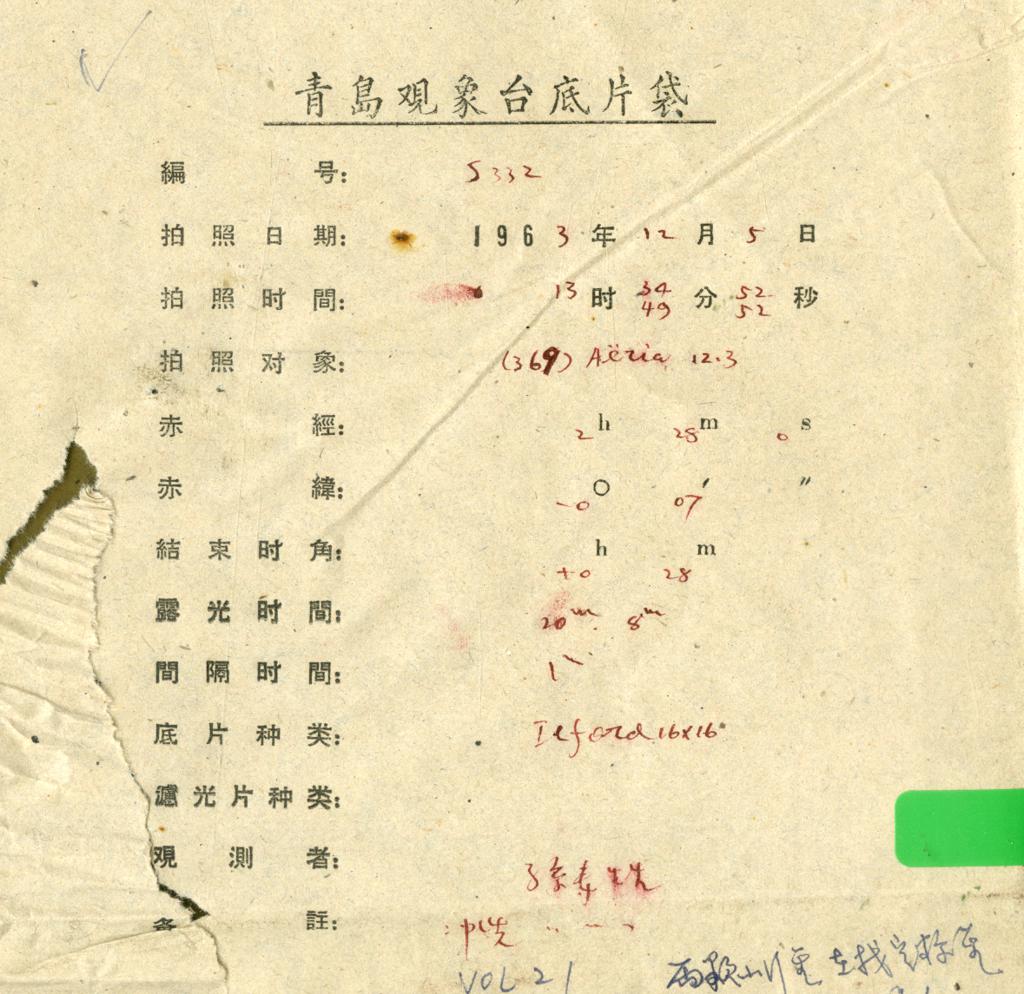 青島观象台底片袋
編号: S332
拍照日期: 1963年12月5日
拍照时間: 13时34分52秒
49 52
拍照对象: (369) Aëria 12.3
赤經: 2h 28m 0s
赤緯: -0° 07′ ″
結束时角: +0h 28m
露光时間: 20m 8m
間隔时間: 1m
底片种类: Ilford 16x16
濾光片种类:
观測者: 孫寿
备註: 冲洗 〃
VOL 21